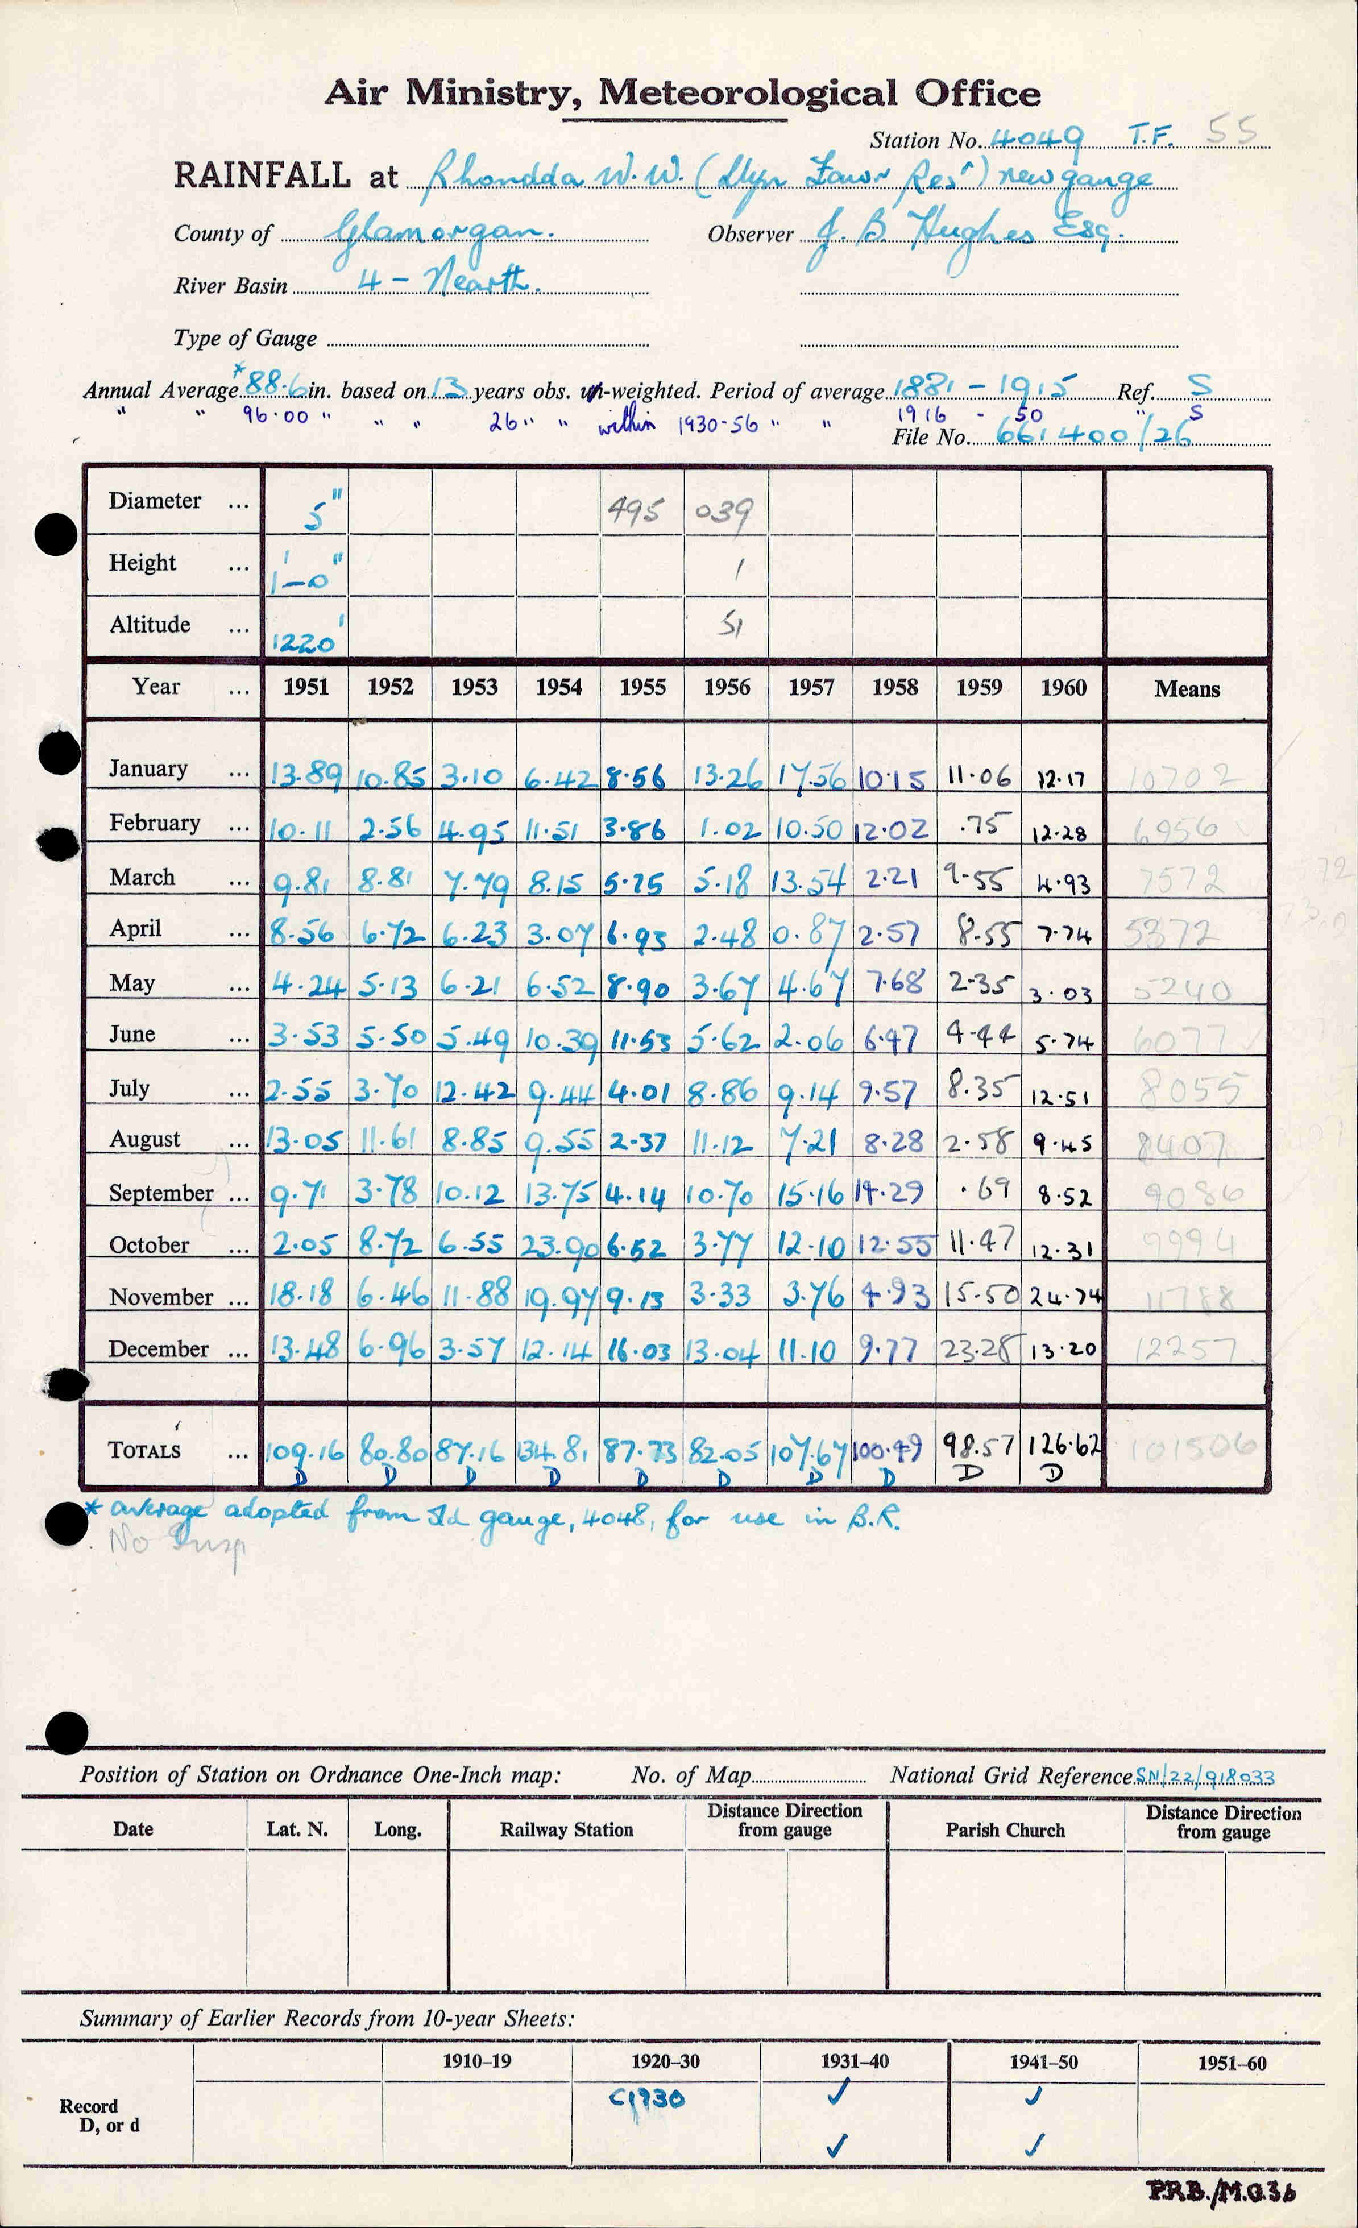 Air Ministry, Meteorological Office
Station No. 4049 T.F. 55
RAINFALL at Rhondda W.W. (Llyn Fawr Resr) new gauge
County of Glamorgan. Observer J. B. Hughes Esq.
River Basin 4 - Neath.
Type of Gauge
Annual Average *88.6 in. based on 13 years obs. un-weighted. Period of average 1881 - 1915 Ref. S
" " 96.00 " " " 26 " " within 1930-56 " " 1916 - 50 " S
File No. 661400/26
Diameter ... 5" 495 039
Height ... 1'-0" 1
Altitude ... 1220' 51
Year ... 1951 1952 1953 1954 1955 1956 1957 1958 1959 1960 Means
January ... 13.89 10.85 3.10 6.42 8.56 13.26 17.56 10.15 11.06 12.17 10702
February ... 10.11 2.56 4.95 11.51 3.86 1.02 10.50 12.02 .75 12.28 6956
March ... 9.81 8.81 7.79 8.15 5.75 5.18 13.54 2.21 9.55 4.93 7572
April ... 8.56 6.72 6.23 3.07 6.93 2.48 0.87 2.57 8.55 7.74 5372
May ... 4.24 5.13 6.21 6.52 8.90 3.67 4.67 7.68 2.35 3.03 5240
June ... 3.53 5.50 5.49 10.39 11.53 5.62 2.06 6.47 4.44 5.74 6077
July ... 2.55 3.70 12.42 9.44 4.01 8.86 9.14 9.57 8.35 12.51 8055
August ... 13.05 11.61 8.85 9.55 2.37 11.12 7.21 8.28 2.58 9.45 8407
September ... 9.71 3.78 10.12 13.75 4.14 10.70 15.16 14.29 .69 8.52 9086
October ... 2.05 8.72 6.55 23.90 6.52 3.77 12.10 12.55 11.47 12.31 9994
November ... 18.18 6.46 11.88 19.97 9.13 3.33 3.76 4.93 15.50 24.74 11788
December ... 13.48 6.96 3.57 12.14 16.03 13.04 11.10 9.77 23.28 13.20 12257
TOTALS ... 109.16 80.80 87.16 134.81 87.73 82.05 107.67 100.49 98.57 126.62 101506
D D D D D D D D D D
* average adopted from old gauge, 4048, for use in B.R.
No Insp
Position of Station on Ordnance One-Inch map: No. of Map National Grid Reference SN/22/918033
Date Lat. N. Long. Railway Station Distance Direction from gauge Parish Church Distance Direction from gauge
Summary of Earlier Records from 10-year Sheets:
1910–19 1920–30 1931–40 1941–50 1951–60
Record D, or d C1930 ✓ ✓
✓ ✓
P.R.B./M.O.36